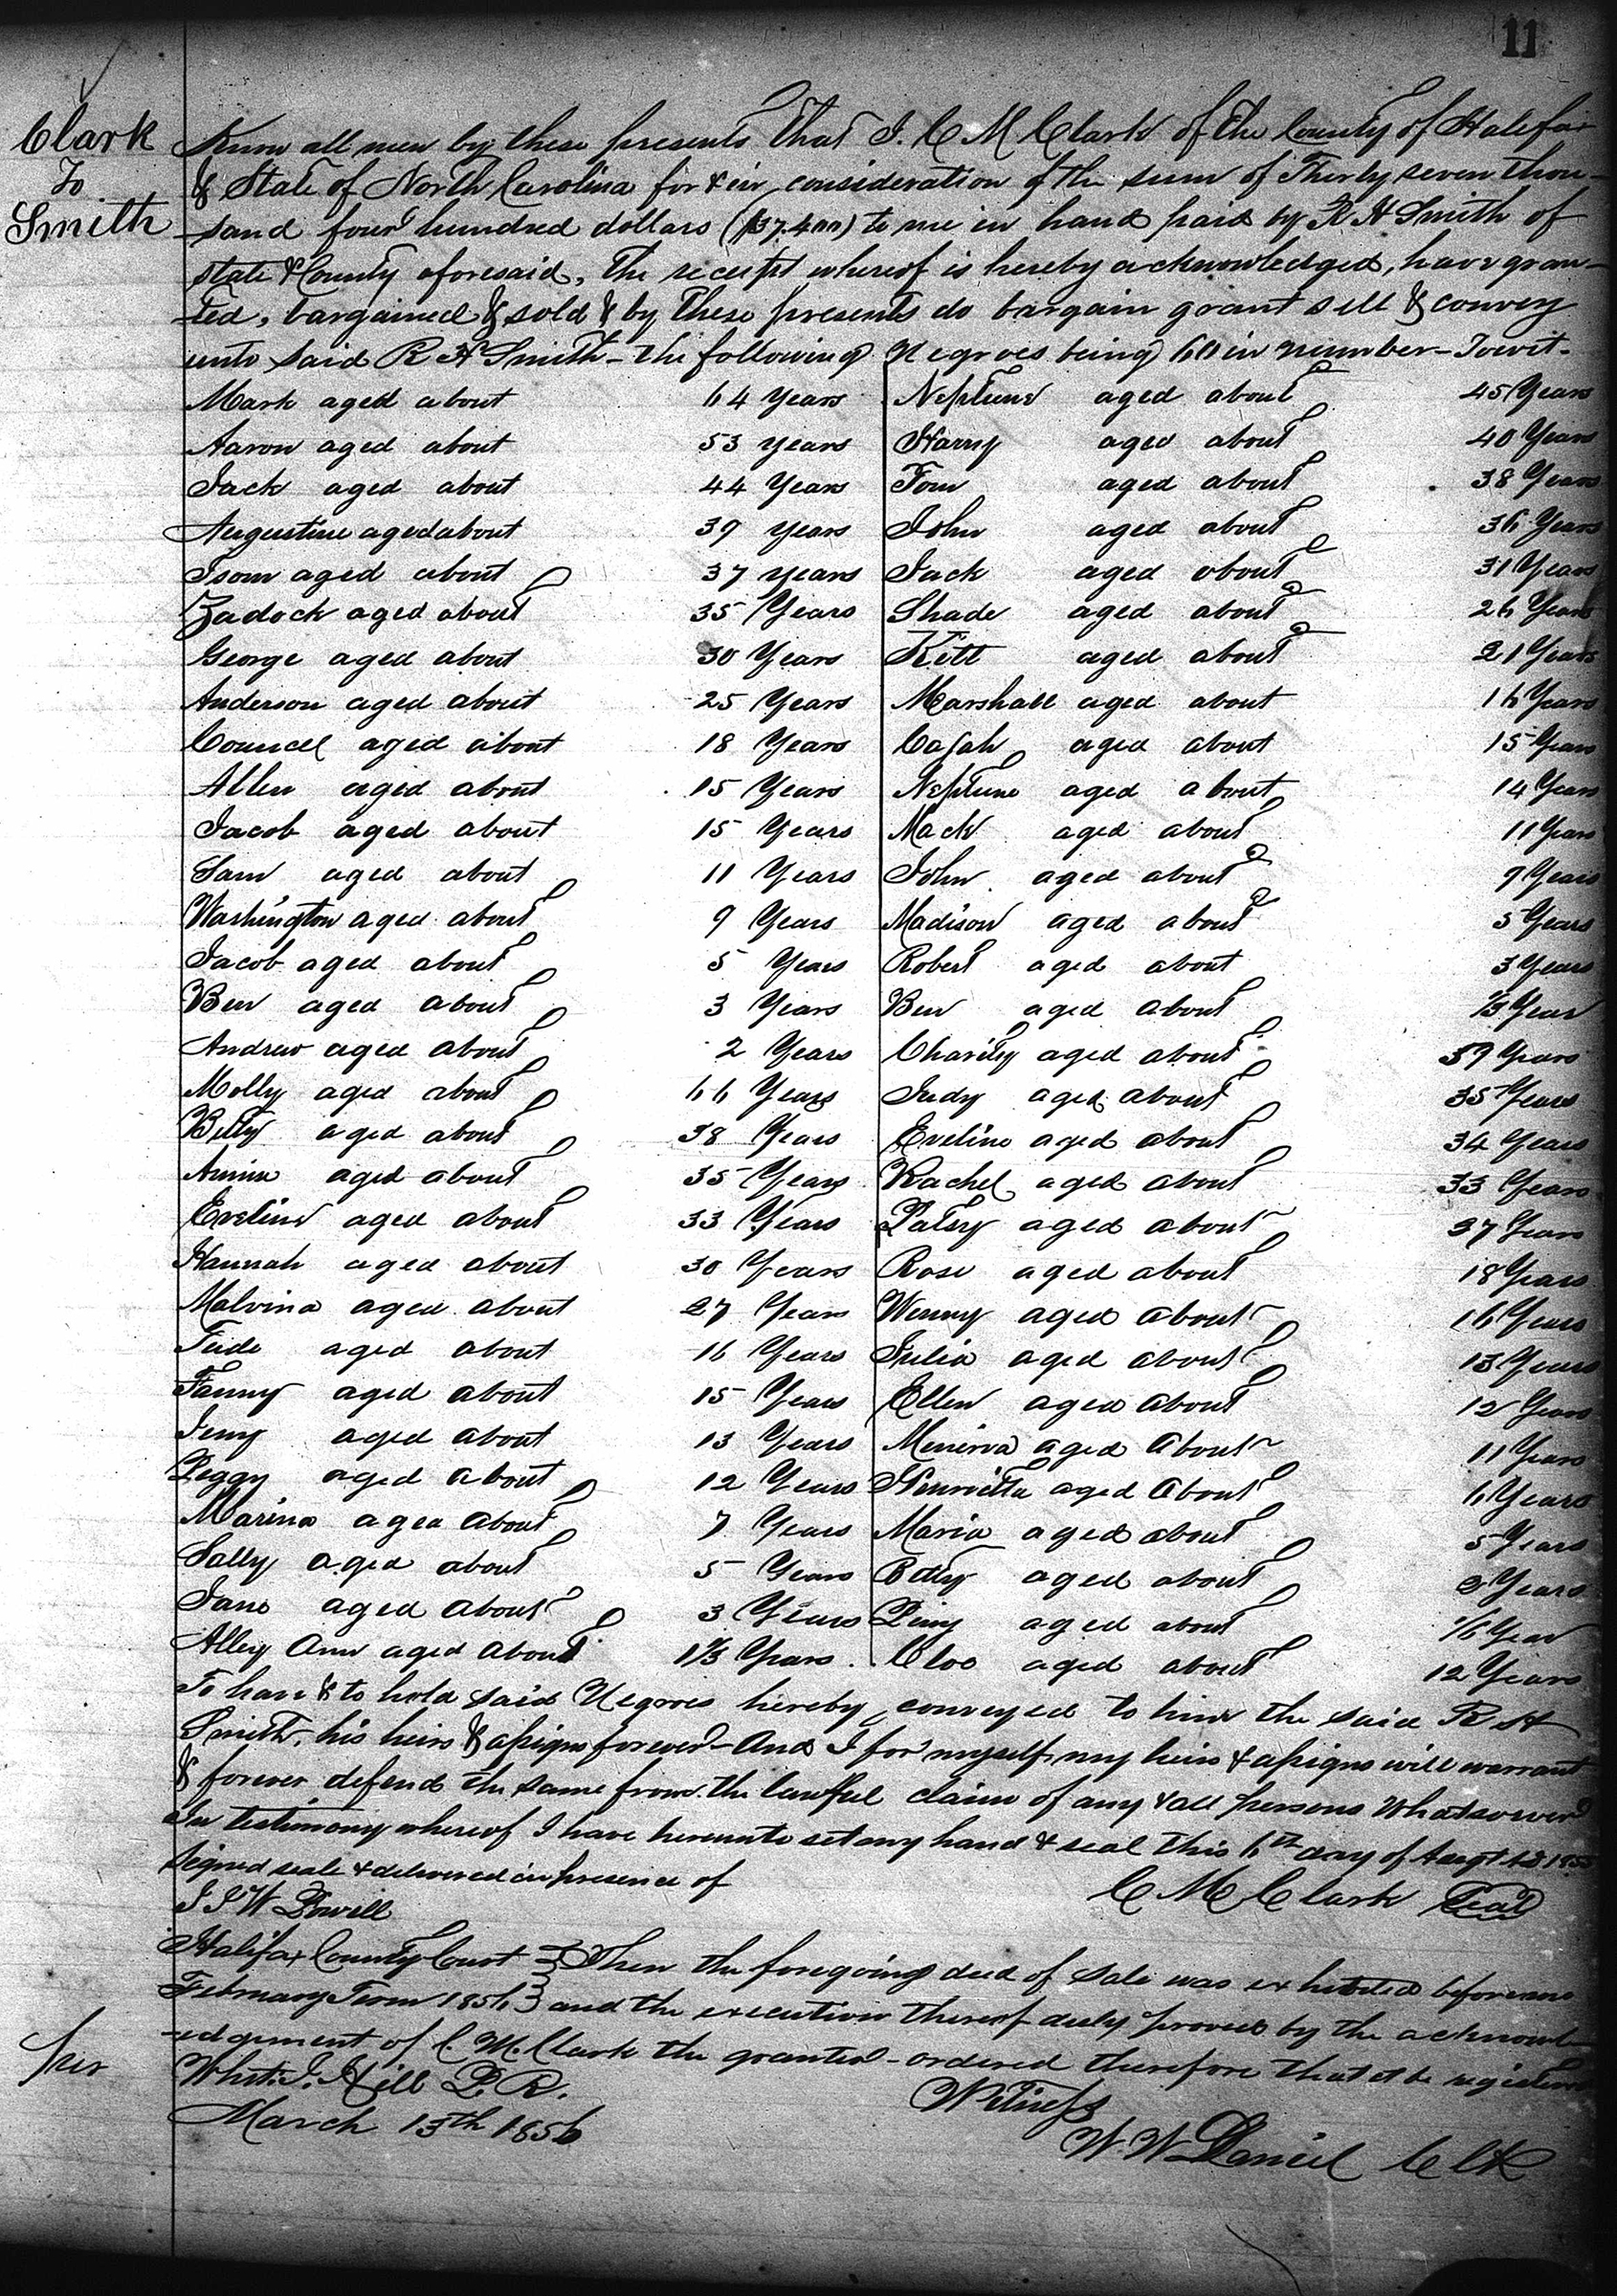 11
Clark
To
Smith
Know all men by these presents that I. C M Clark of the County of Halifax
& State of North Carolina for & in consideration of the sum of Thirty seven thou-
sand four hundred dollars ($37.400) to me in hand paid by R H Smith of
state & County aforesaid, the receipt whereof is hereby acknowledged, have gran-
ted, bargained & sold & by these presents do bargain grant sell & convey
unto said R H Smith - the following Negroes being 60 in number - Towit -
Mark aged about 64 Years Neptune aged about 45 Years
Aaron aged about 53 years Harry aged about 40 Years
Jack aged about 44 Years Tom aged about 38 Years
Augustine aged about 39 years John aged about 36 Years
Isom aged about 37 years Jack aged about 31 Years
Zadock aged about 35 Years Shade aged about 26 Years
George aged about 30 Years Kitt aged about 21 Years
Anderson aged about 25 Years Marshall aged about 16 Years
Councel aged about 18 Years Cajah aged about 15 Years
Allen aged about 15 Years Neptune aged about 14 Years
Jacob aged about 15 Years Mack aged about 11 Years
Sam aged about 11 Years John aged about 9 Years
Washington aged about 9 Years Madison aged about 5 Years
Jacob aged about 5 Years Robert aged about 3 Years
Ben aged about 3 Years Ben aged about 1/3 Year
Andrew aged about 2 Years Charity aged about 39 Years
Molly aged about 66 Years Judy aged about 35 Years
Betty aged about 38 Years Eveline aged about 34 Years
aged about 35 Years Rachel aged about 33 Years
Eveline aged about 33 Years Patsy aged about 37 Years
Hannah aged about 30 Years Rose aged about 18 Years
Malvina aged about 27 Years Wenny aged about 16 Years
aged about 16 Years Julia aged about 13 Years
Fanny aged about 15 Years Ellen aged about 12 Years
Jeny aged about 13 Years Minerva aged about 11 Years
Peggy aged about 12 Years Henrietta aged about 6 Years
Marina aged about 7 Years Maria aged about 5 Years
Sally aged about 5 Years Betty aged about 3 Years
Jane aged about 3 Years aged about 1/6 Year
Alley Ann aged about 1 1/3 Years. Cloo aged about 12 Years
To have & to hold said Negroes hereby conveyed to him the said R H
Smith, his heirs & assigns forever - And I for myself, my heirs & assigns will warrant
& forever defend the same from the lawful claim of any & all persons Whatsoever
In testimony whereof I have hereunto set my hand & seal this 6th day of Augt AD 1855
Signed seale & delivered in presence of C M Clark Seal
J J W Powell
Halifax County Court } Then the foregoing deed of sale was exhibited before me
February Term 1856 } and the execution thereof duly proven by the acknowl-
edgement of C. M. Clark the grantor - ordered therefore that it be registered
Whit. J. Hill P. R. Witness
March 13th 1856
W W Daniel Clk